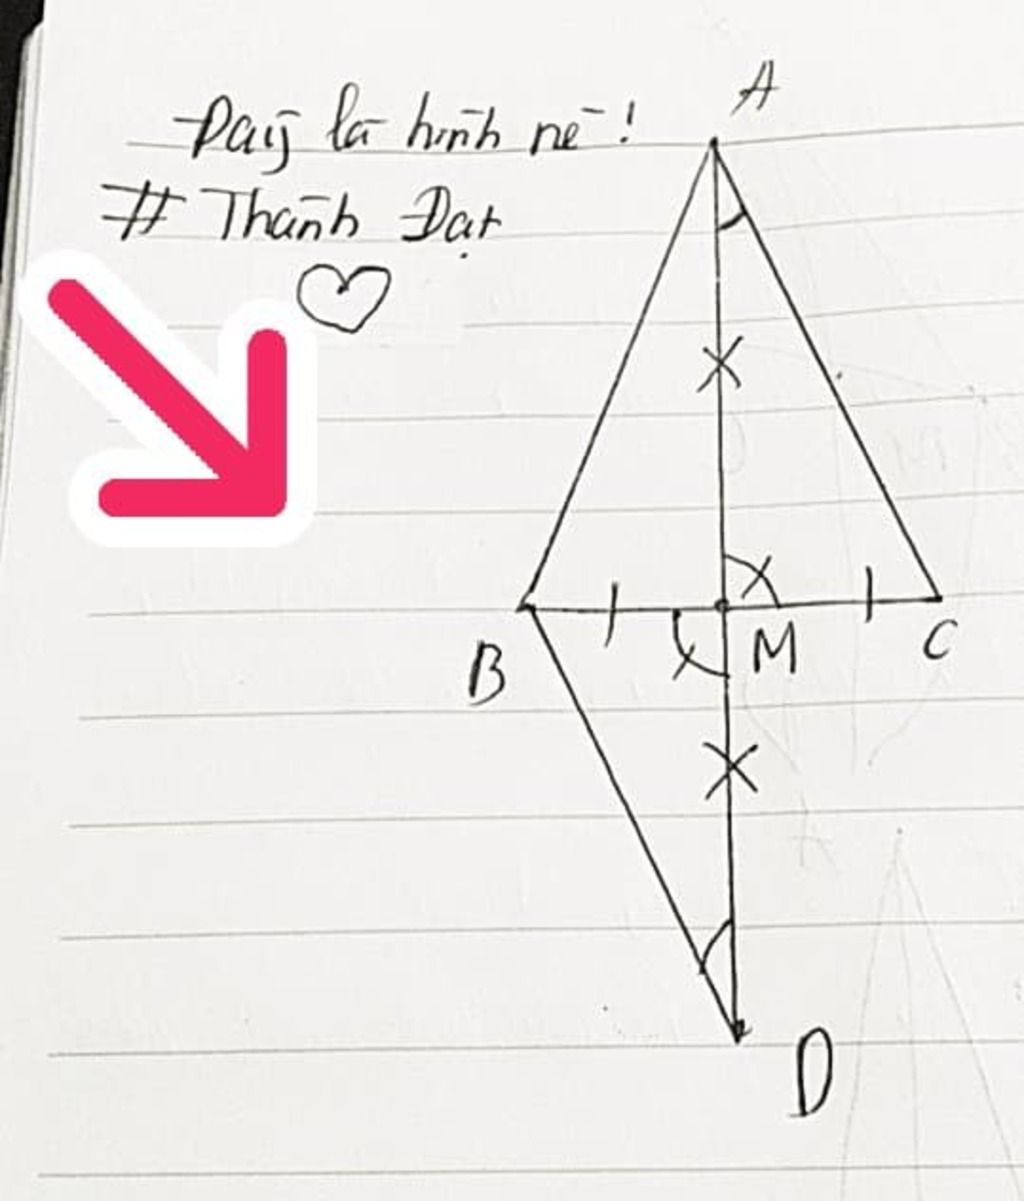 Đây là hình nè!
# Thành Đạt
A
B
M
C
D